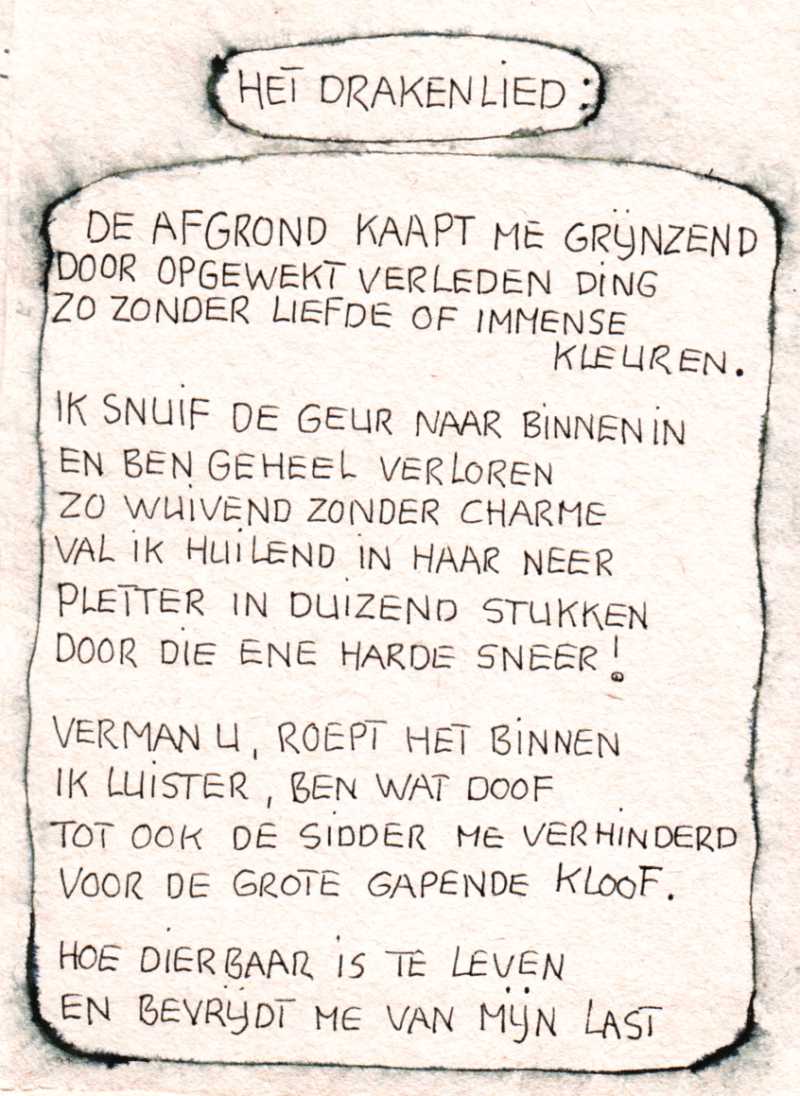 HET DRAKENLIED:
DE AFGROND KAAPT ME GRIJNZEND
DOOR OPGEWEKT VERLEDEN DING
ZO ZONDER LIEFDE OF IMMENSE
KLEUREN.
IK SNUIF DE GEUR NAAR BINNENIN
EN BEN GEHEEL VERLOREN
ZO WUIVEND ZONDER CHARME
VAL IK HUILEND IN HAAR NEER
PLETTER IN DUIZEND STUKKEN
DOOR DIE ENE HARDE SNEER!
VERMAN U, ROEPT HET BINNEN
IK LUISTER, BEN WAT DOOF
TOT OOK DE SIDDER ME VERHINDERD
VOOR DE GROTE GAPENDE KLOOF.
HOE DIERBAAR IS TE LEVEN
EN BEVRIJDT ME VAN MIJN LAST